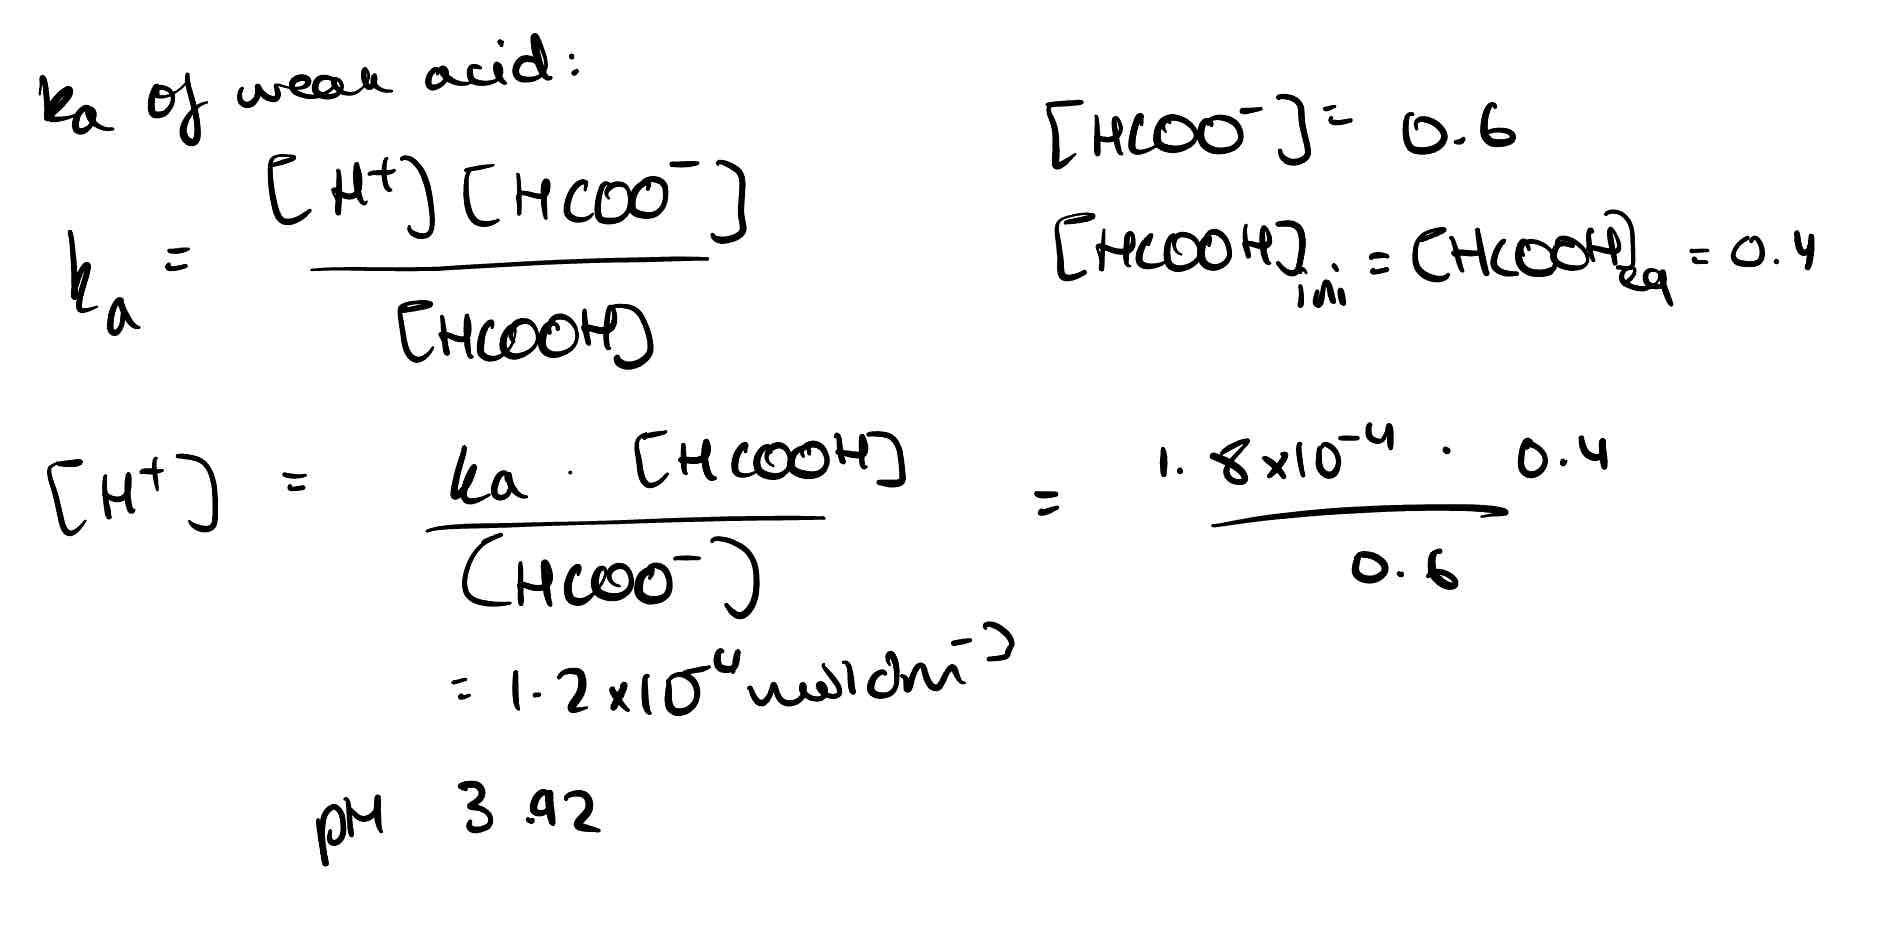 ka of weak acid:
[HCOO⁻] = 0.6
ka = [H⁺][HCOO⁻] / [HCOOH]
[HCOOH]ini = [HCOOH]eq = 0.4
[H⁺] = ka · [HCOOH] / (HCOO⁻) = 1.8×10⁻⁴ · 0.4 / 0.6
= 1.2×10⁻⁴ moldm⁻³
pH 3.92